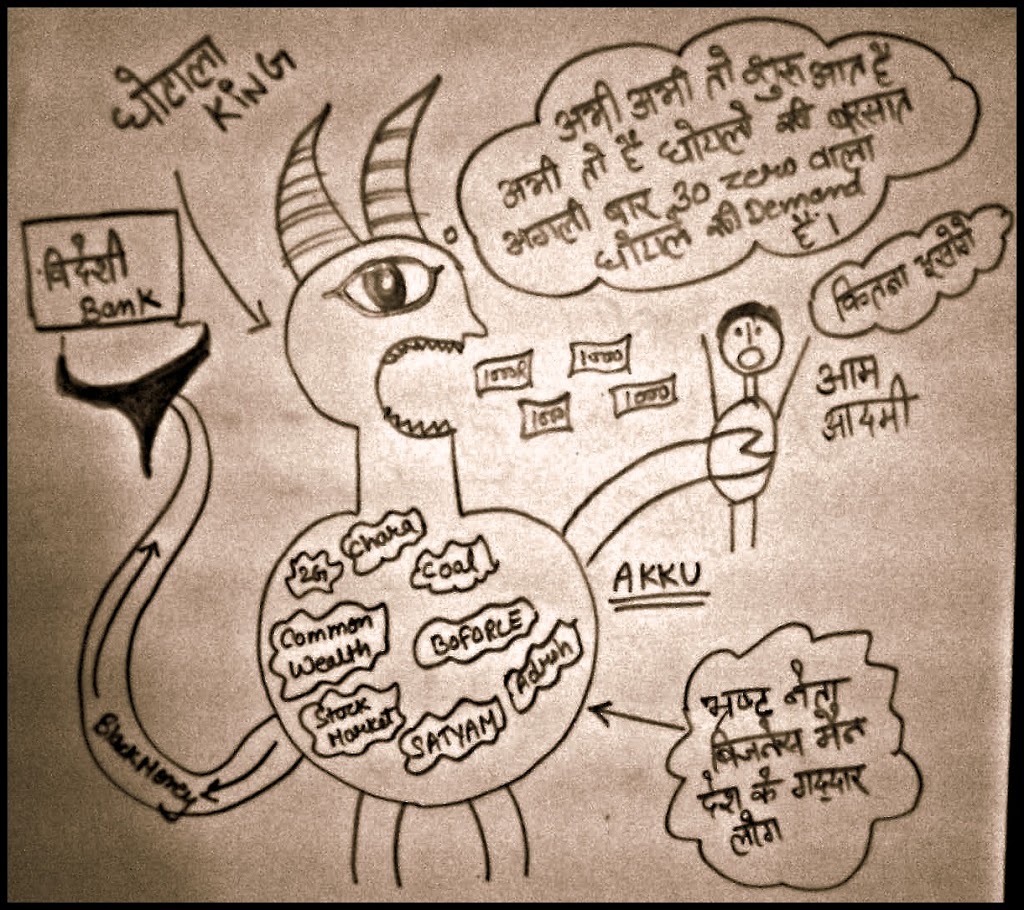 घोटाला
KING
अभी अभी तो शुरू आत है
अभी तो है घोटाले की बरसात
अगली बार 30 zero वाला
घोटाले की Demand
है।
विदेशी
Bank
कितना चूसोगे
आम
आदमी
1000R
1000
1000
1000
2G
Chara
Coal
AKKU
Common
Wealth
BOFORLE
Adrsh
Stock
Market
SATYAM
Black Money
भ्रष्ट नेता
बिजनेस मैन
देश के गद्दार
लोग